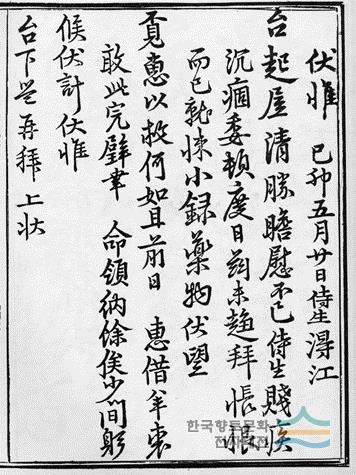 伏惟 己卯五月廿日侍生潯江
台起居清勝瞻慰不已侍生賤疾
沉痼委頓度日未趨拜悵恨
而已就悚小録藥物伏望
覓惠以救何如且前日 惠借年表
敢此完璧幸 命領納餘俟少間躬
候伏計伏惟
台下再拜 上状
한국향토문화
전자대전